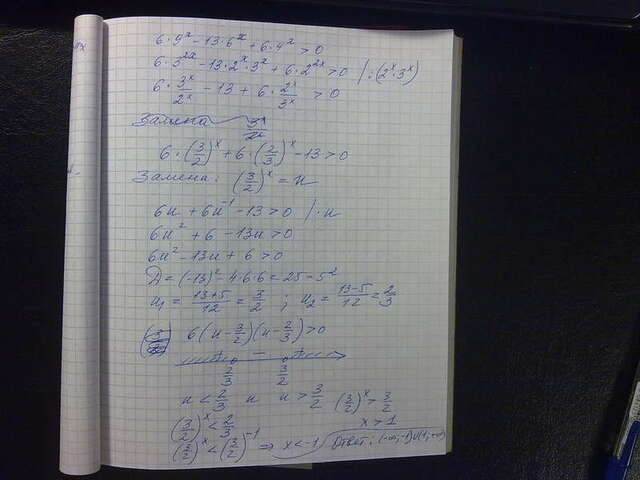 6·9ˣ-13·6ˣ+6·4ˣ>0
6·3²ˣ-13·2ˣ·3ˣ+6·2²ˣ>0 /:(2ˣ·3ˣ)
6·3ˣ/2ˣ-13+6·2ˣ/3ˣ>0
Замена
6·(3/2)ˣ+6·(2/3)ˣ-13>0
Замена: (3/2)ˣ=и
6и+6и⁻¹-13>0 /·и
6и²+6-13и>0
6и²-13и+6>0
Д=(-13)²-4·6·6=25=5²
и₁=(13+5)/12=3/2 ; и₂=(13-5)/12=2/3
6(и-3/2)(и-2/3)>0
+ - +
2/3 3/2
и<2/3 и и>3/2 (3/2)ˣ>3/2
(3/2)ˣ<2/3 x>1
(3/2)ˣ<(3/2)⁻¹ ⇒ x<-1 Ответ: (-∞;-1)∪(1;+∞)